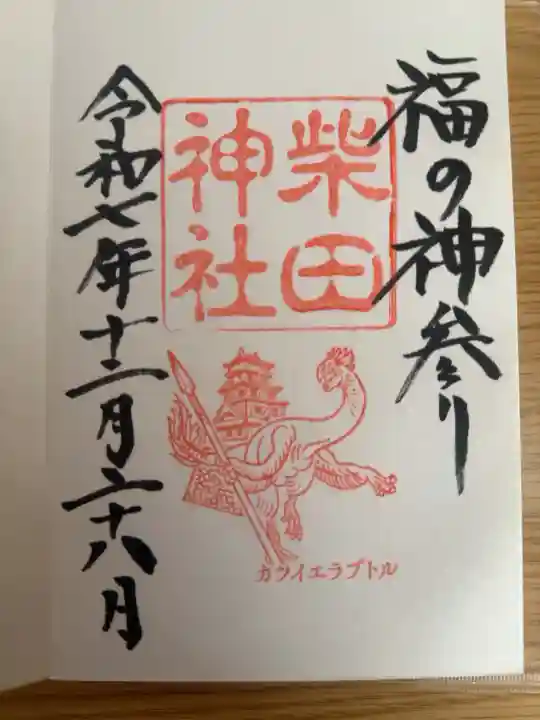 福の神参り
柴田
神社
令和七年十二月二十八日
カツイエラプトル